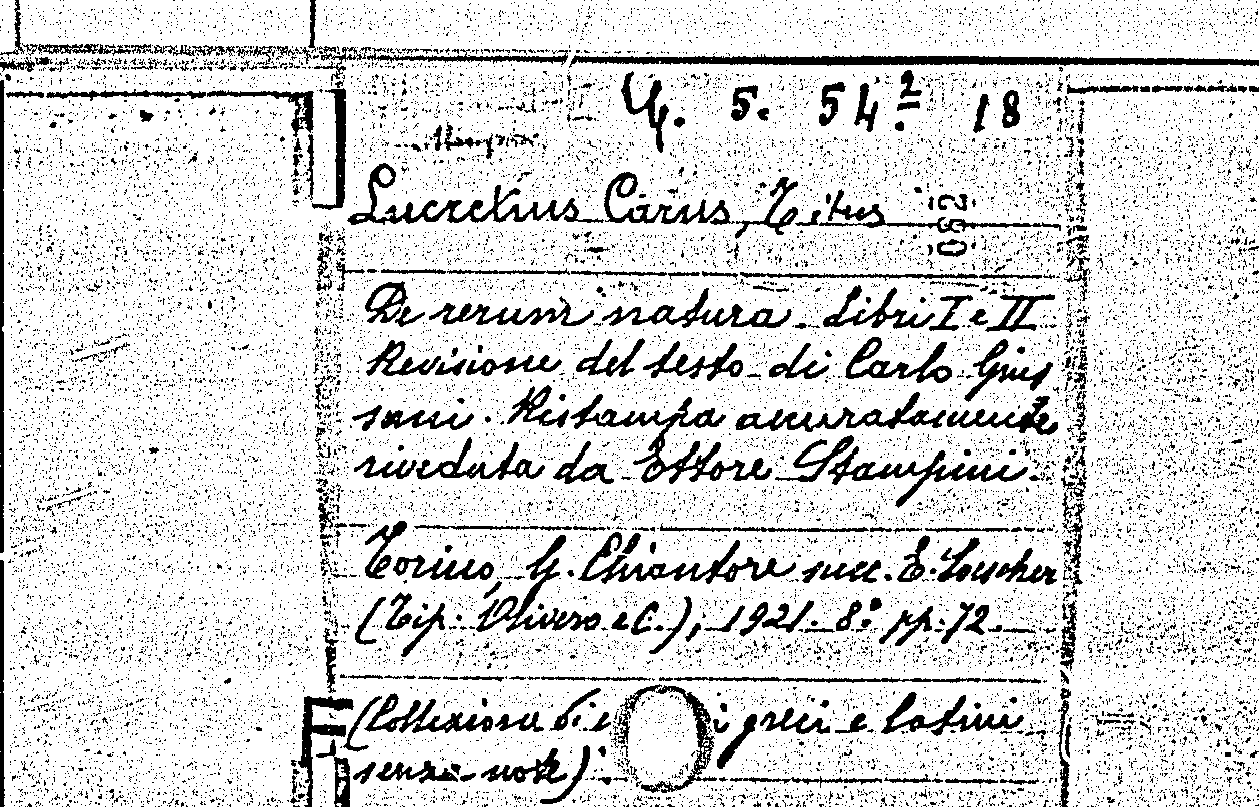 5. 54.2 18
Lucretius Carus, Titus
062
De rerum natura. Libri I e II
Revisione del testo di Carlo Gius
sani. Ristampa accuratamente
riveduta da Ettore Stampini.
Torino, G. Chiantore succ. E. Loescher
(Tip. Olivero e C.), 1921. 8.° pp. 72.
(Collezione di c i greci e latini
senza note).